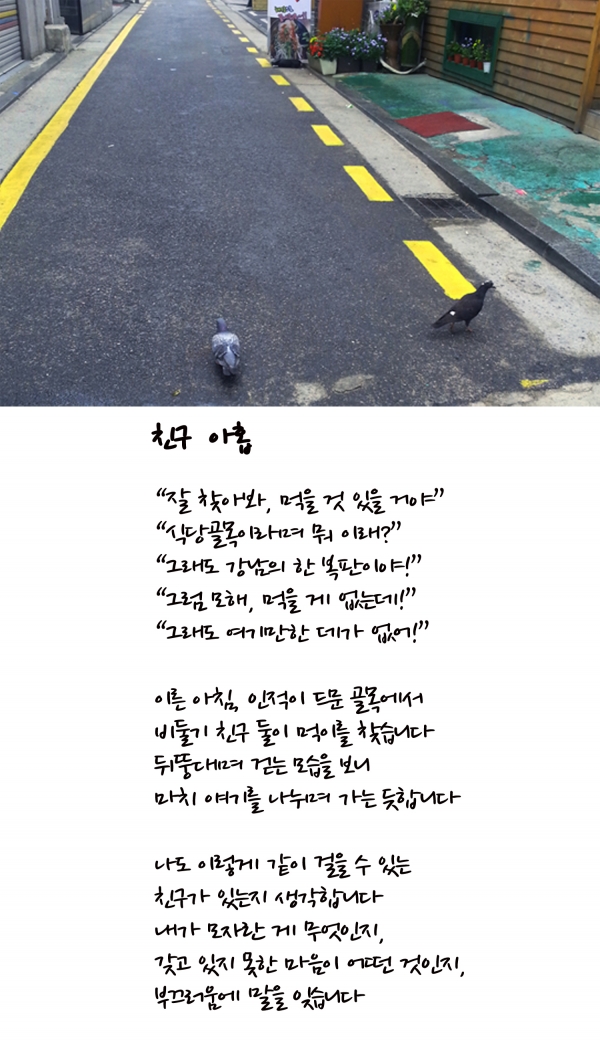 친구 아홉
“잘 찾아봐, 먹을 것 있을 거야”
“식당골목이라며 뭐 이래?”
“그래도 강남의 한 복판이야!”
“그럼 모해, 먹을 게 없는데!”
“그래도 여기만한 데가 없어!”
이른 아침, 인적이 드문 골목에서
비둘기 친구 둘이 먹이를 찾습니다
뒤뚱대며 걷는 모습을 보니
마치 얘기를 나눠며 가는 듯합니다
나도 이렇게 같이 걸을 수 있는
친구가 있는지 생각합니다
내가 모자란 게 무엇인지,
갖고 있지 못한 마음이 어떤 것인지,
부끄러움에 말을 잊습니다